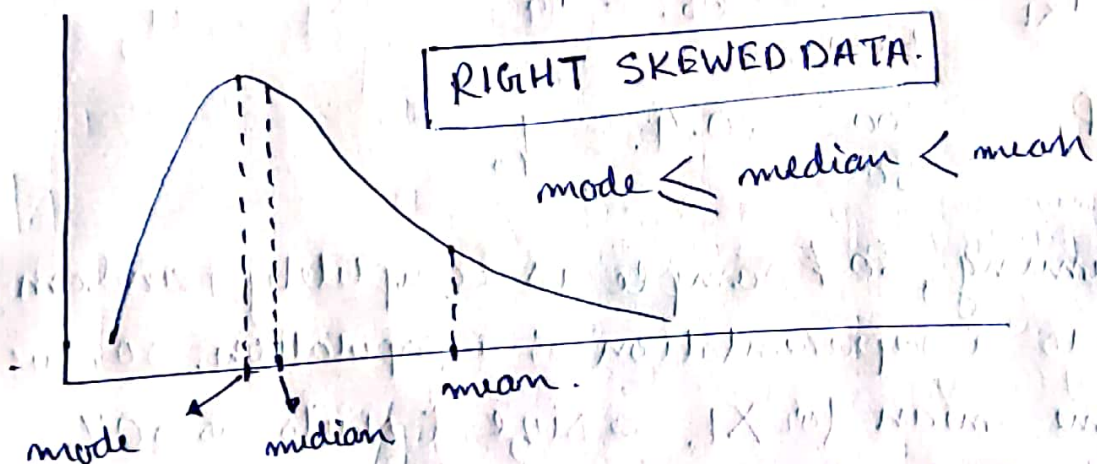 RIGHT SKEWED DATA.
mode ≤ median < mean
mean.
mode
median